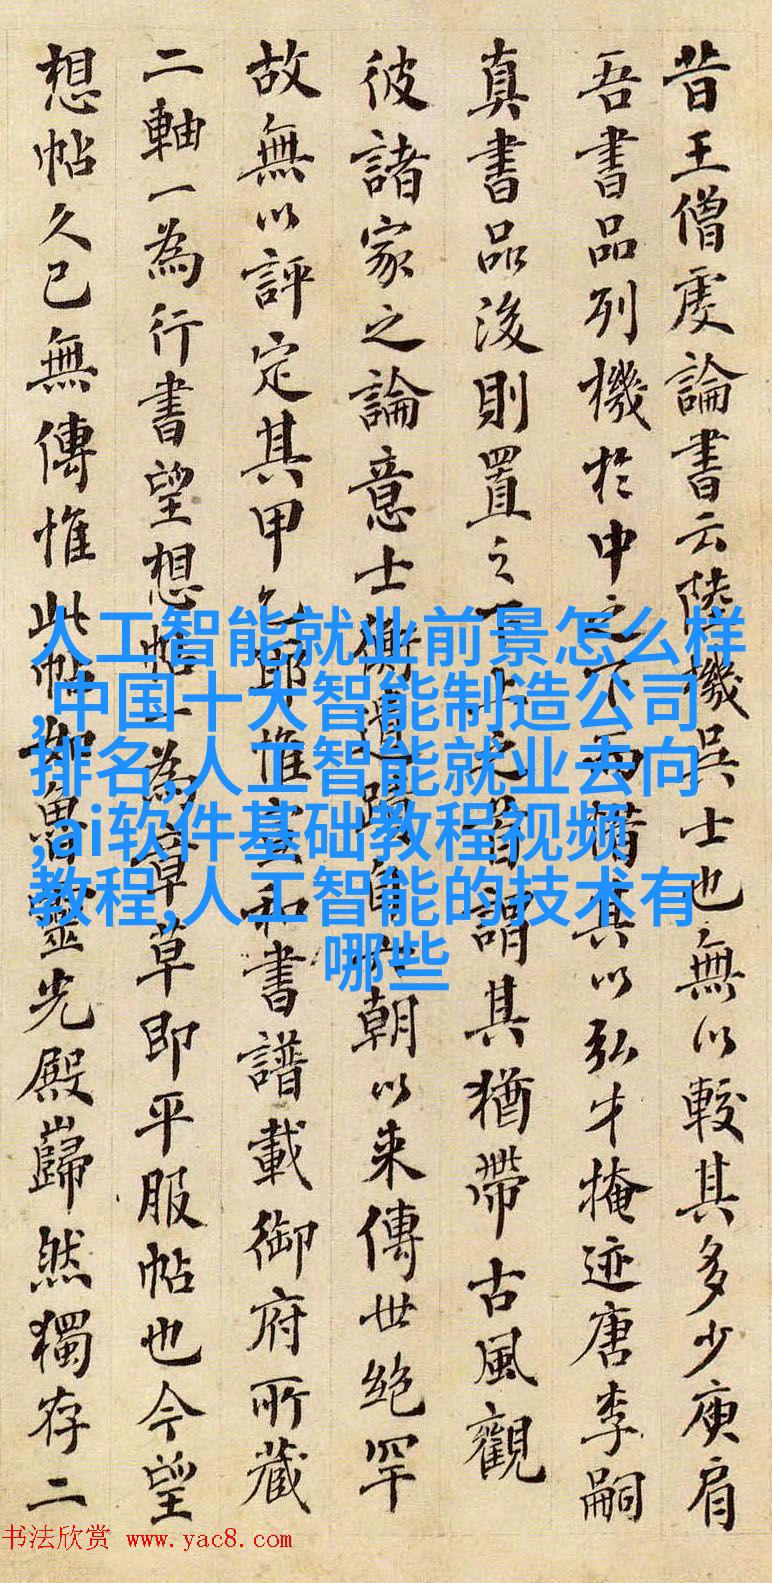 昔王僧虔論書云陸機吳士也無以較其多少庾肩
吾書品列機於中之下而惜其以弘才掩迹唐李嗣
真書品後則置之下上之首謂其猶帶古風觀
彼諸家之論意士衡遺蹟自六朝以来傳世絶罕
故無以評定其甲乙耶惟宣和書譜載御府所蔵
二軸一為行書望想帖一為章草即平服帖也今望
想帖久已無傳惟此帖如魯靈光殿巋然獨存二
人工智能就业前景怎么样
,中国十大智能制造公司
排名,人工智能就业去向
,ai软件基础教程视频
教程,人工智能的技术有
哪些
书法欣赏 www.yac8.com